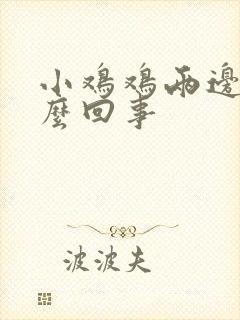 小鸡鸡兩邊
麼回事
波波夫